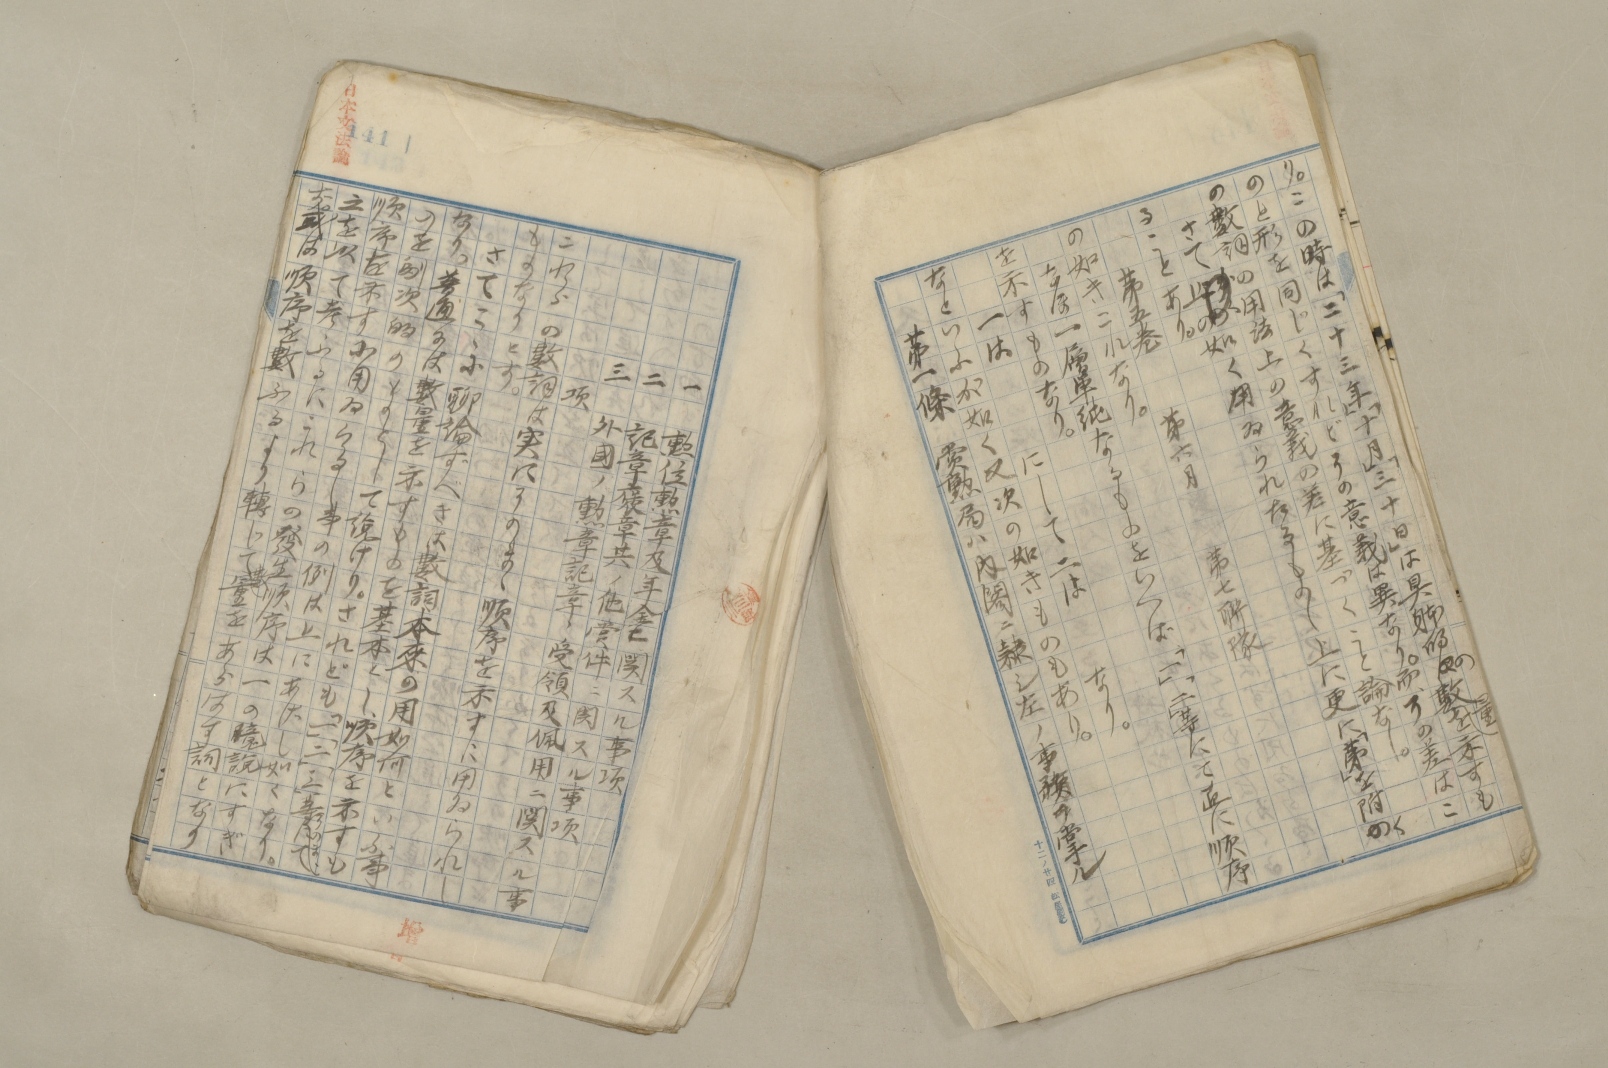 り。この時は「二十三年」「十月」「三十日」は具躰的の數量を示すも
のと形を同じくすれどその意義は異なり。而、その差はこ
の數詞の用法上の意義の差に基づくこと論なし。
さて 如く用ゐられたるものゝ上に更に「第」を附く
ることあり。
第五卷 第六月 第七聯隊
の如きこれなり。
なほ一層單純なるものをいへば、「一」「二」等にて直に順序
を示すものあり。
一は にして 二は なり。
なといふが如く又次の如きものもあり。
第一條 賞勳局ハ内閣ニ隷シ左ノ事務ヲ掌ル
一 勳位勳章及年金ニ関スル事項
二 記章褒章其ノ他賞件ニ関スル事項
三 外國ノ勳章記章ノ受領及佩用ニ関スル事
項
これらの數詞は実にそのまゝ順序を示すに用ゐられし
ものなりとす。
さてこゝに聊論ずべきは數詞本來の用如何といふ事
なり。普通には數量を示すものを基本とし、順序を示すも
のを副次的のものとして説けり。されども「一」「二」「三」
順序を示すに用ゐらるゝ事の例は上にあげし如くなり。
之を以て考ふるにこれらの發生順序は一の臆説にすぎ
或は順序を數ふるより轉じて數量をあらはす詞となり
日本文法論
141
十二ノ廿四